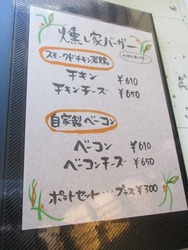 燻し家バーガー
スモークドチキン若鶏
チキン ¥610
チキンチーズ ¥650
自家製ベーコン
ベーコン ¥610
ベーコンチーズ ¥650
ポテトセット・・・プラス¥300